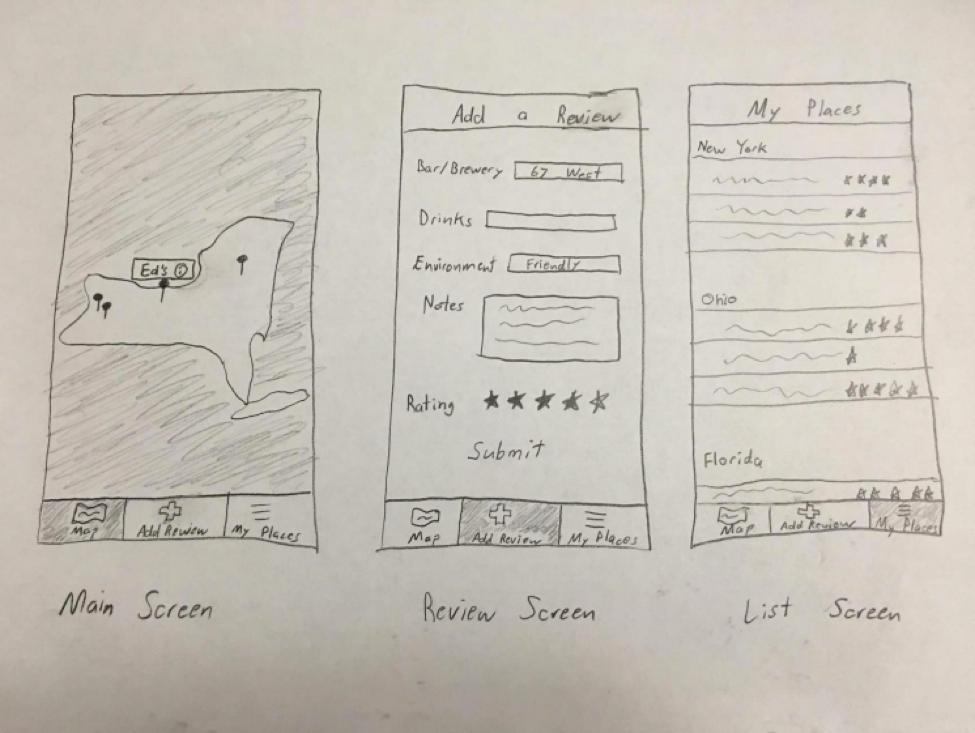 Ed's i
Map
Add Review
My Places
Main Screen
Add a Review
Bar/Brewery 67 West
Drinks
Environment Friendly
Notes
Rating
Submit
Map
Add Review
My Places
Review Screen
My Places
New York
Ohio
Florida
Map
Add Review
My Places
List Screen